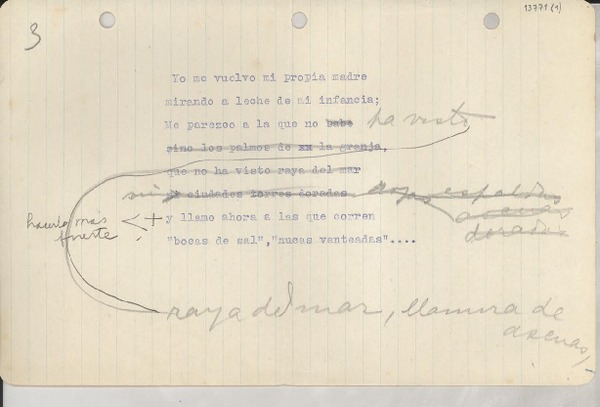 13771(1)
3
Yo me vuelvo mi propia madre
mirando a leche de mi infancia;
Me parezco a la que no bebe ha visto
sino los palmos de xx la granja,
que no ha visto raya del mar
ni ciudades torres doradas espaldas
arenas
doradas
hacerlo más
fuerte
y llamo ahora a las que corren
"bocas de sal","nucas vanteadas"....
raya del mar, llanura de
arenas,